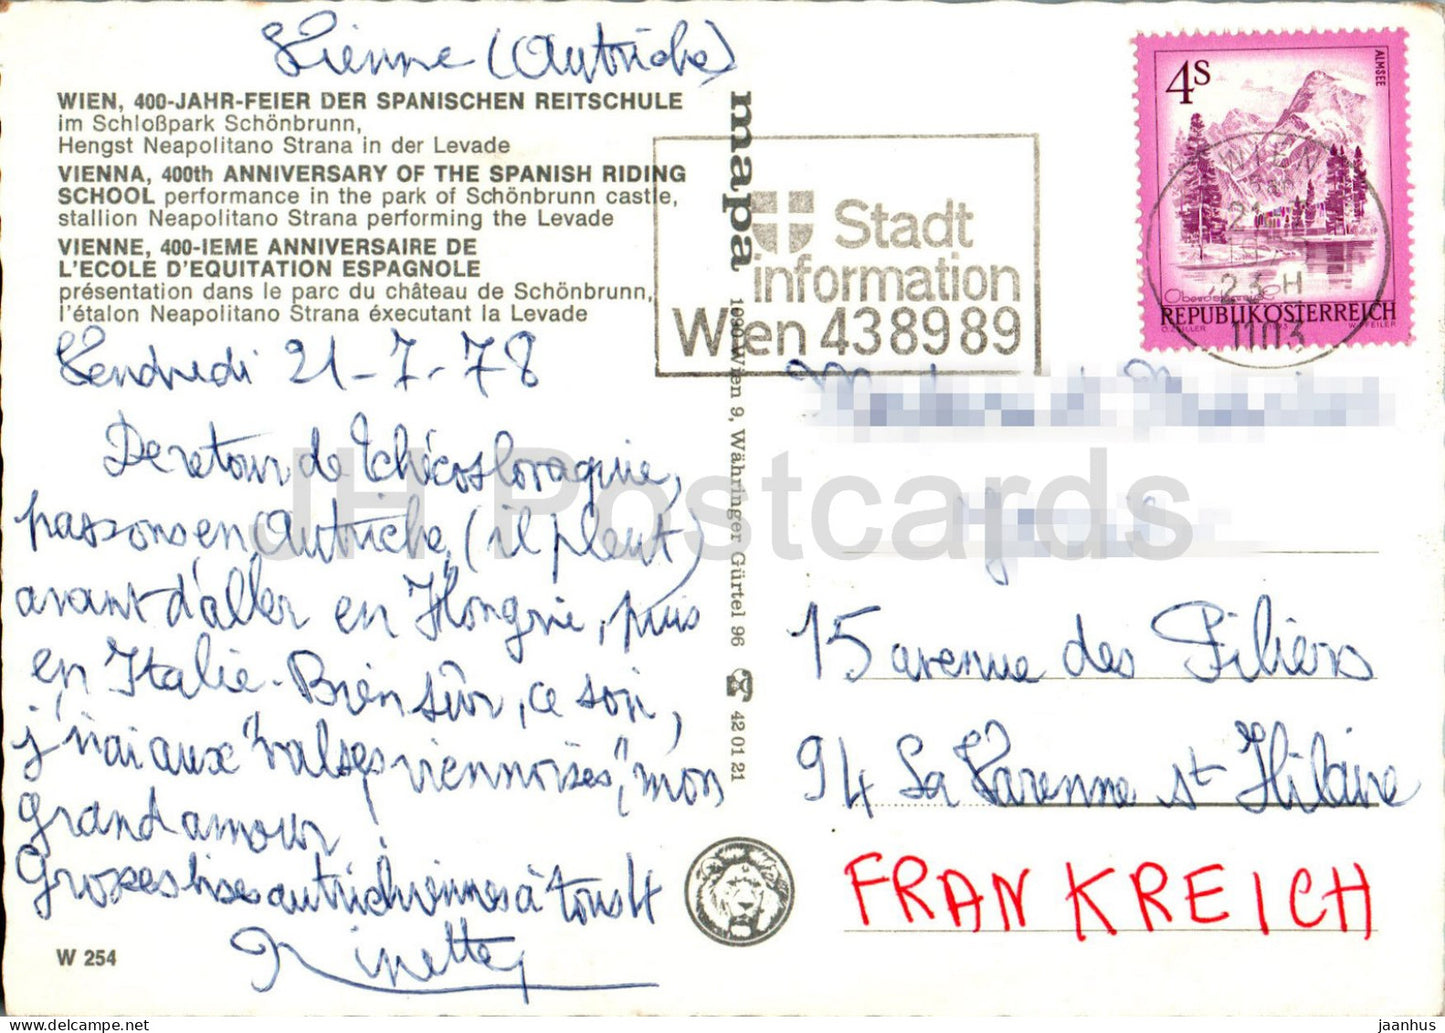 Vienne (Autriche)
WIEN, 400-JAHR-FEIER DER SPANISCHEN REITSCHULE
im Schloßpark Schönbrunn,
Hengst Neapolitano Strana in der Levade
VIENNA, 400th ANNIVERSARY OF THE SPANISH RIDING
SCHOOL performance in the park of Schönbrunn castle,
stallion Neapolitano Strana performing the Levade
VIENNE, 400-IEME ANNIVERSAIRE DE
L'ECOLE D'EQUITATION ESPAGNOLE
présentation dans le parc du château de Schönbrunn,
l'étalon Neapolitano Strana éxecutant la Levade
Vendredi 21-7-78
De retour de Tchécosloraquie,
passons en Autriche, (il pleut)
avant d'aller en Hongrie, puis
en Italie. Bien sûr, ce soir,
j'irai aux "valses viennoises", mon
grand amour!
Grosses bises autrichiennes à tous 4
Ginette
W 254
mapa
1090 Wien 9, Währinger Gürtel 96
42 01 21
Stadt
information
Wien 43 89 89
4S
ALMSEE
REPUBLIK ÖSTERREICH
WIEN
21
23 H
1103
15 avenue des Piliers
94 La Varenne St Hilaire
FRANKREICH
JH Postcards
jaanhus @ www.delcampe.net